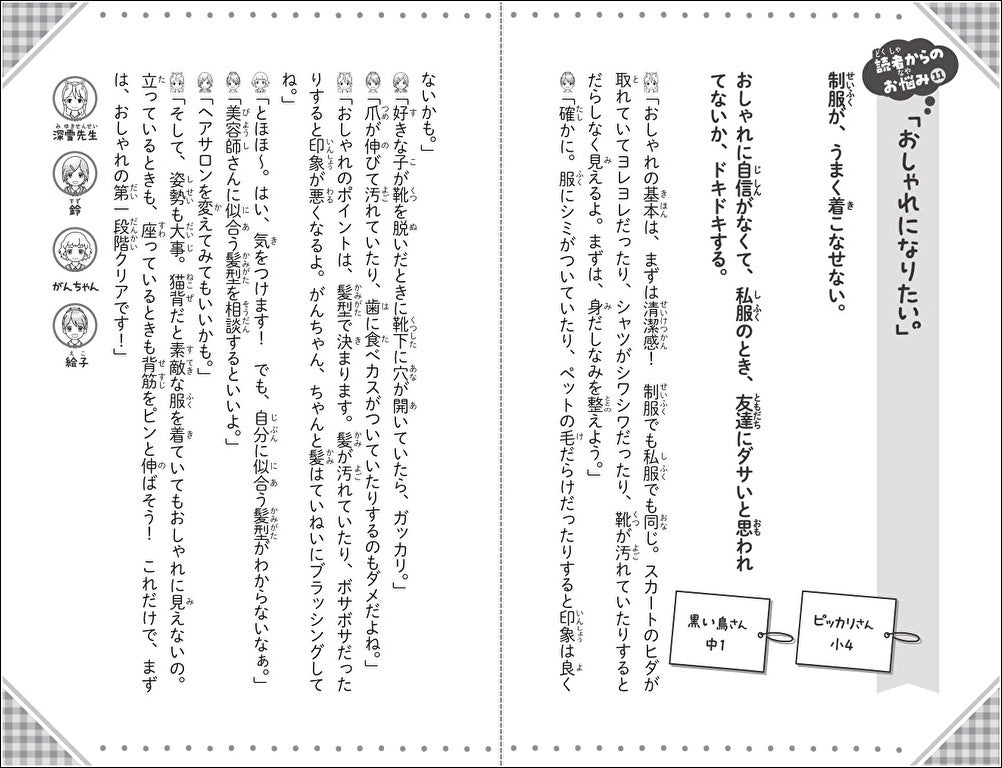 読者からのお悩み11
「おしゃれになりたい。」
制服が、うまく着こなせない。
ピッカリさん
小4
おしゃれに自信がなくて、私服のとき、友達にダサいと思われ
てないか、ドキドキする。
黒い鳥さん
中1
「おしゃれの基本は、まずは清潔感！　制服でも私服でも同じ。スカートのヒダが
取れていてヨレヨレだったり、シャツがシワシワだったり、靴が汚れていたりすると
だらしなく見えるよ。まずは、身だしなみを整えよう。」
「確かに。服にシミがついていたり、ペットの毛だらけだったりすると印象は良く
ないかも。」
「好きな子が靴を脱いだときに靴下に穴が開いていたら、ガッカリ。」
「爪が伸びて汚れていたり、歯に食べカスがついていたりするのもダメだよね。」
「おしゃれのポイントは、髪型で決まります。髪が汚れていたり、ボサボサだった
りすると印象が悪くなるよ。がんちゃん、ちゃんと髪はていねいにブラッシングして
ね。」
「とほほ～。はい、気をつけます！　でも、自分に似合う髪型がわからないなぁ。」
「美容師さんに似合う髪型を相談するといいよ。」
「ヘアサロンを変えてみてもいいかも。」
「そして、姿勢も大事。猫背だと素敵な服を着ていてもおしゃれに見えないの。
立っているときも、座っているときも背筋をピンと伸ばそう！　これだけで、まず
は、おしゃれの第一段階クリアです！」
深雪先生
鈴
がんちゃん
絵子